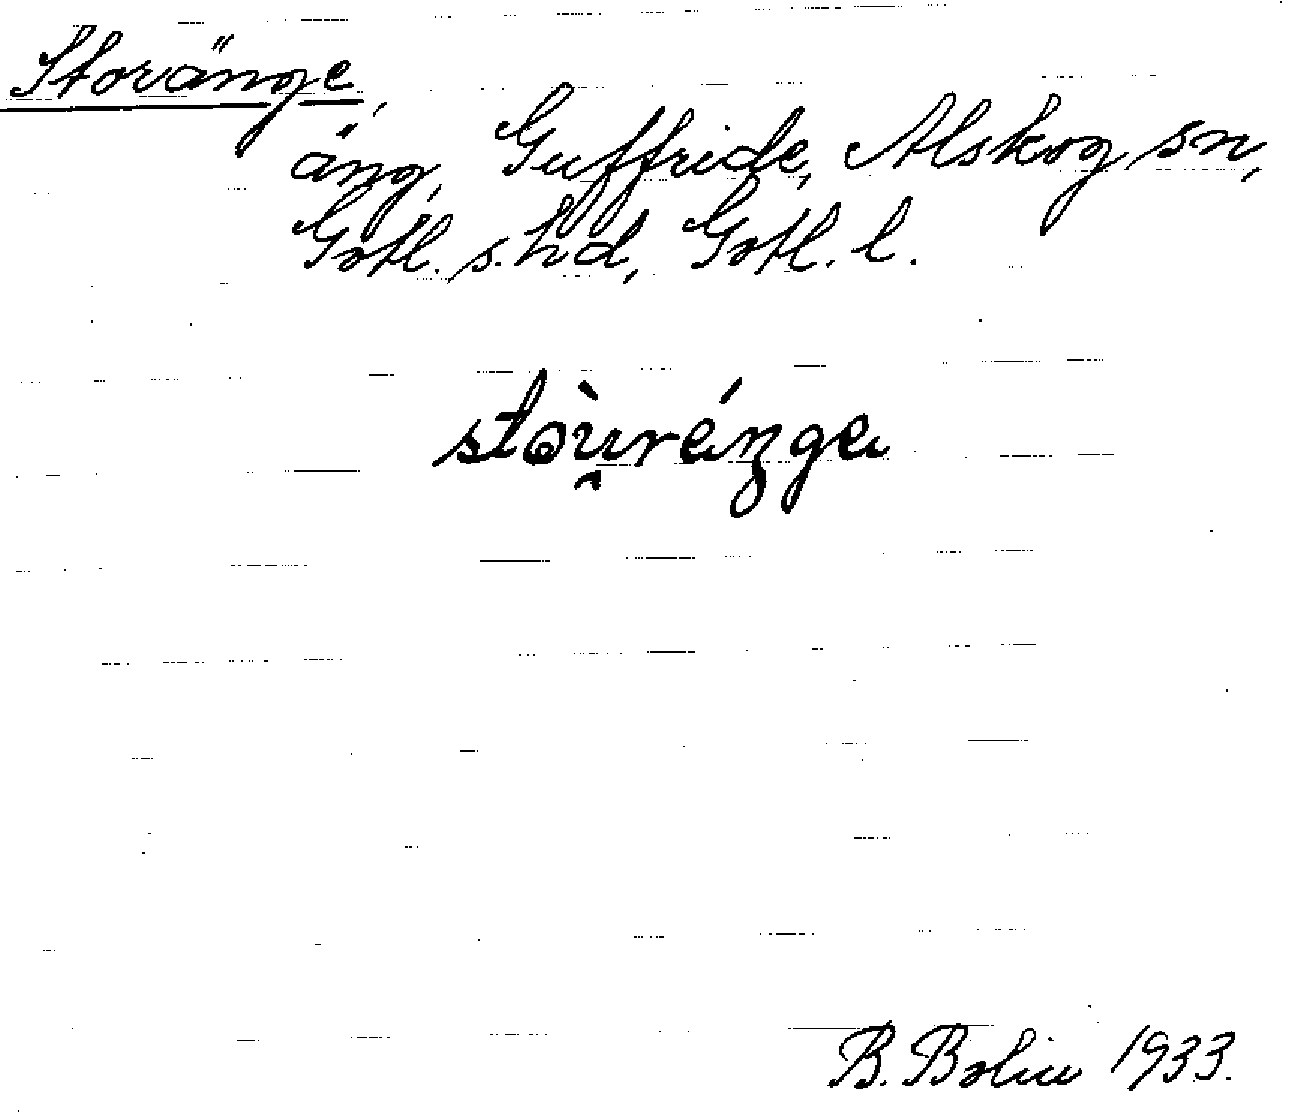 Storänge,
äng, Guffride, Alskog sn,
Gotl. s. hd, Gotl. l.
stòu̯réŋge
B. Bolin 1933.